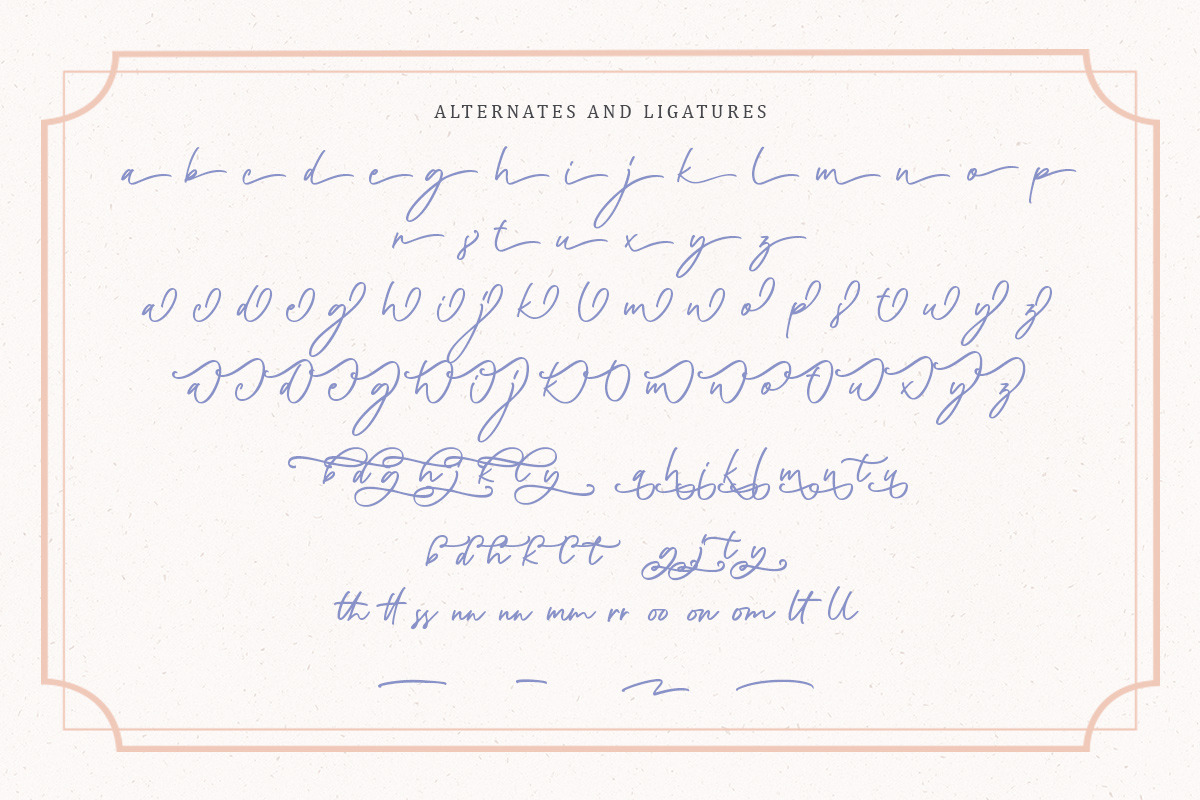 ALTERNATES AND LIGATURES
a b c d e g h i j k l m n o p
r s t u x y z
a c d e g h i j k l m n o p s t u y z
a c d e g h i j k l m n o t u x y z
b d g h j k l y a h i k l m o n t y
b d h k l t g j t y
th tt ss nn nn mm rr oo on om lt ll